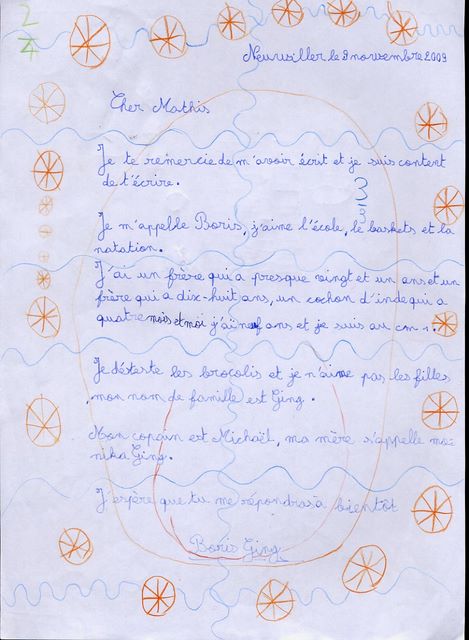 2
4
Neuwiller le 9 novembre 2009
Cher Mathis
Je te remercie de m'avoir écrit et je suis content
de t'écrire.
3
3
Je m'appelle Boris, j'aime l'école, le baskets et la
natation.
J'ai un frère qui a presque vingt et un ans et un
frère qui a dix-huit ans, un cochon d'inde qui a
quatre mois et moi j'ai neuf ans et je suis au cm 1.
Je déteste les brocolis et je n'aime pas les filles
mon nom de famille est Ging.
Mon copain est Michaël, ma mère s'appelle mo-
nika Ging.
J'espère que tu me répondras à bientôt
Boris Ging